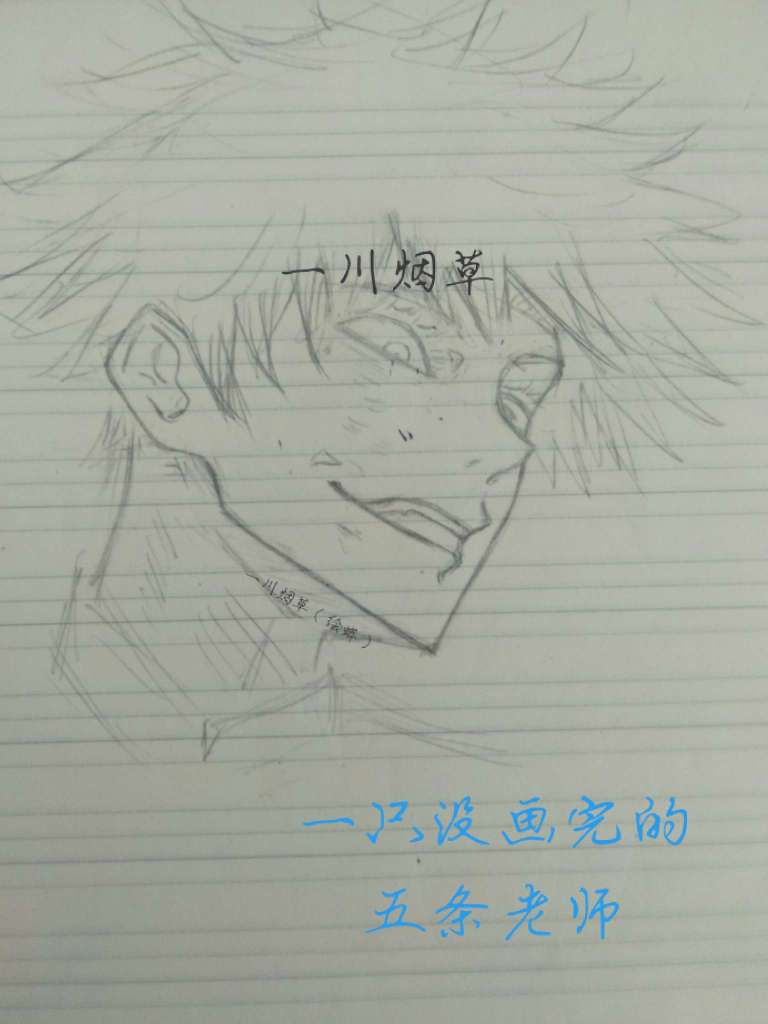 一川烟草
一川烟草(绘郷)
一只没画完的
五条老师